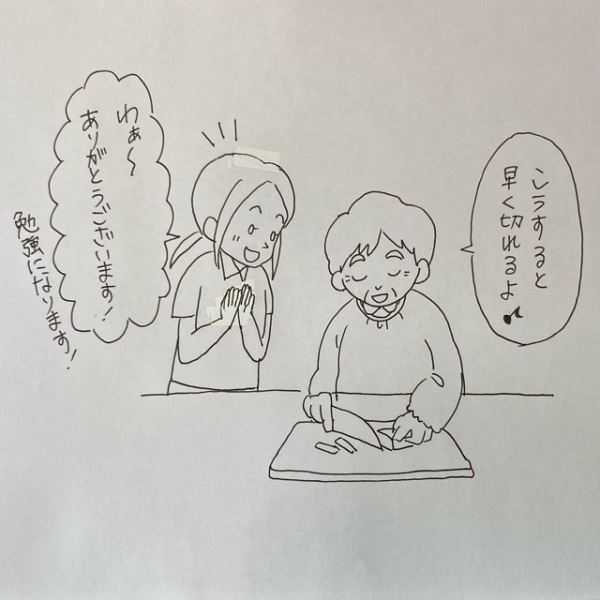 こうすると
早く切れるよ♪
わぁ〜
ありがとうございます!
勉強になります!